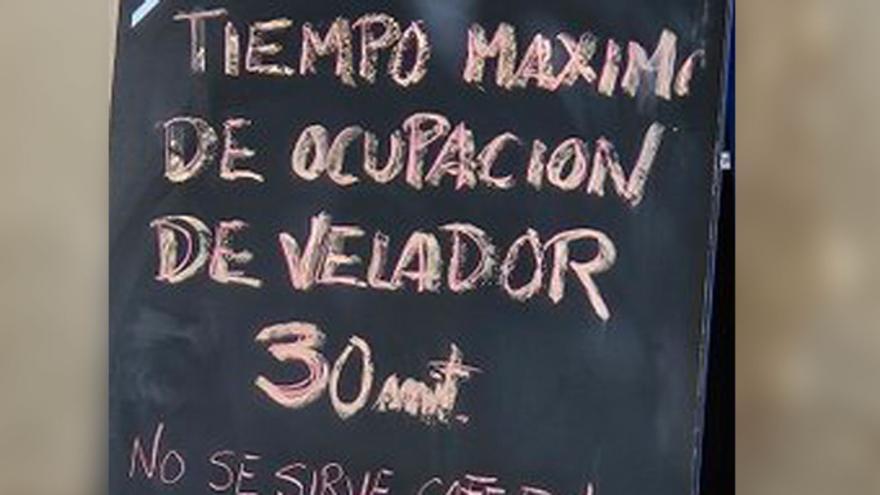 TIEMPO MAXIM
DE OCUPACION
DE VELADOR
30 mnt.
NO SE SIRVE